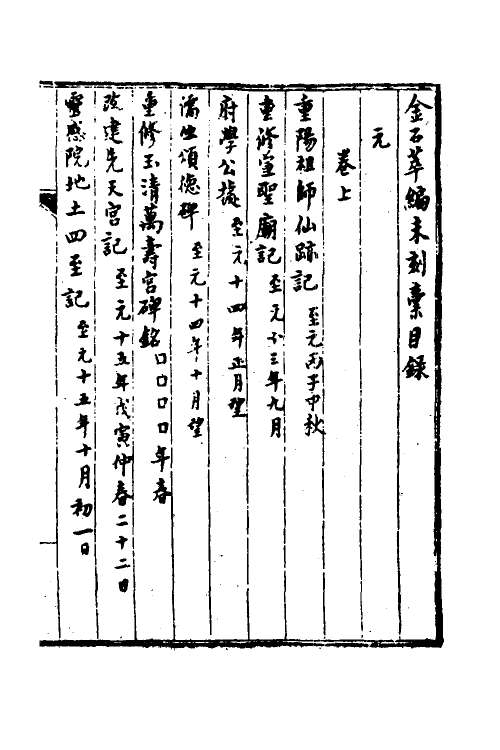 金石萃編未刻稾目錄
元
卷上
重陽祖師仙跡記 至元丙子中秋
重修宣聖廟記 至元十三年九月
府學公據 至元十四年正月望
濡㘴頌德碑 至元十四年十月望
重修玉清萬壽宮碑銘 □□□□年春
改建先天宮記 至元十五年戊寅仲春二十二日
靈感院地土四至記 至元十五年十月初一日